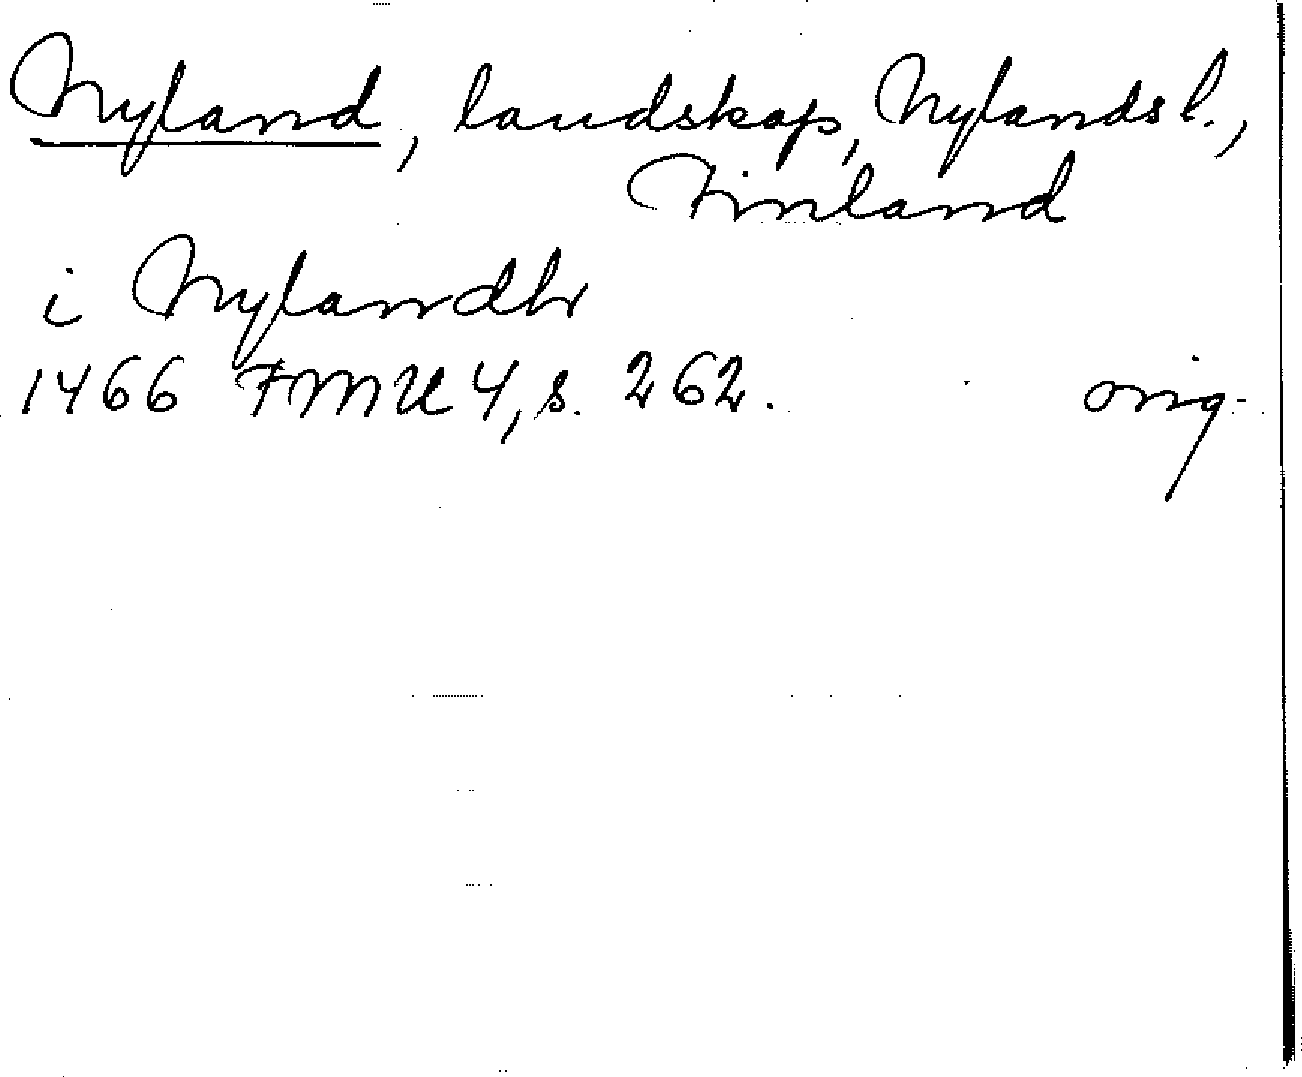 Nyland, landskap, Nylandsl.,
Finland
i Nylandh
1466 FMU 4, s. 262. orig.